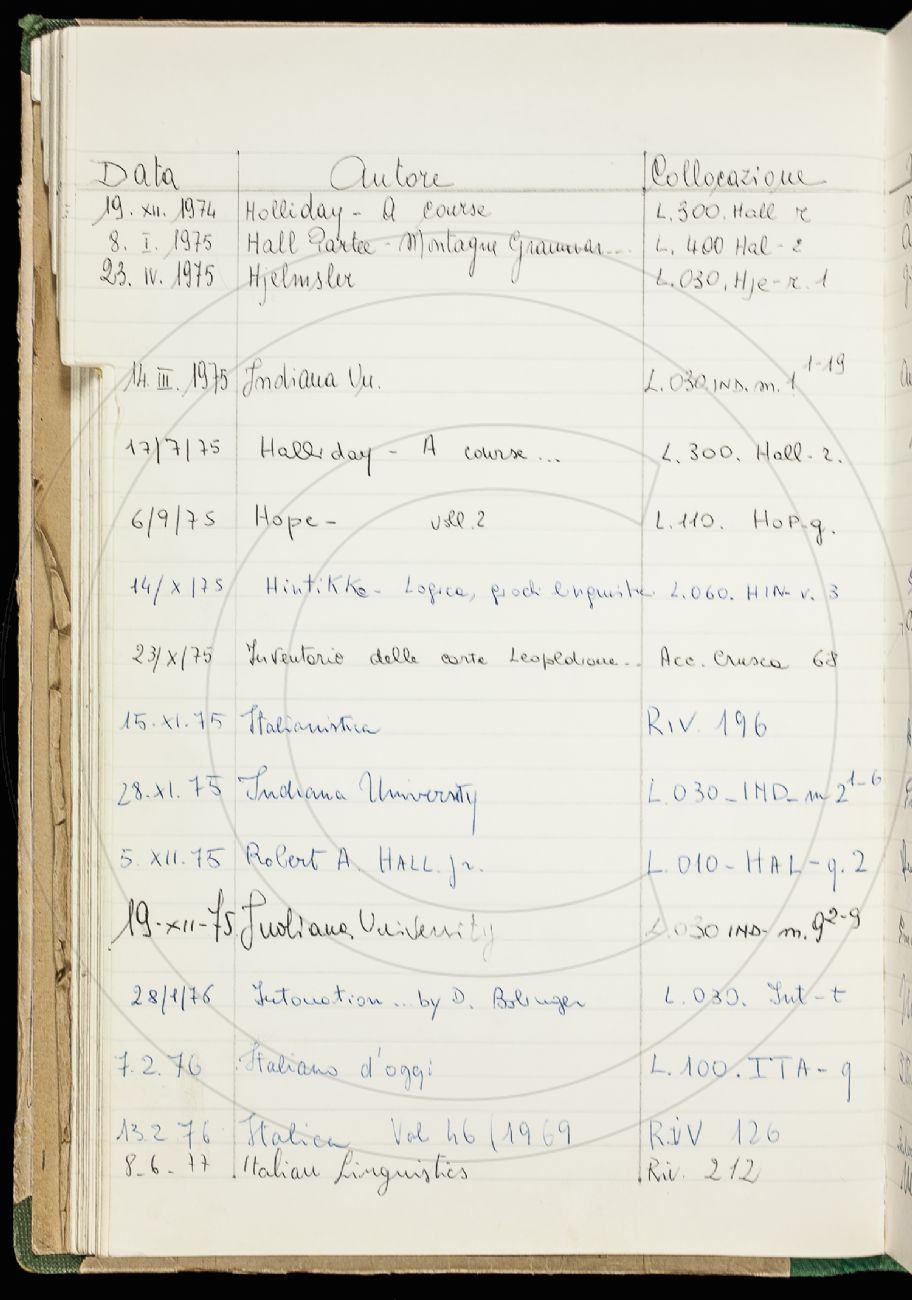 Data Autore Collocazione
19. XII. 1974 Holliday - A course L.300. Hall r
8. I. 1975 Hall Partee - Montague Grammar... L. 400 Hal - r
23. IV. 1975 Hjelmsler L.030. Hje - r. 1
14. III. 1975 Indiana Un. L.030. IND. m. 1 1-19
17/7/75 Halliday - A course ... L.300. Hall - r.
6/9/75 Hope - voll. 2 L.110. HOP-g.
14/X/75 Hintikka - Logica, linguistica L.060. HIN- v. 3
23/X/75 Inventario delle carte Leopldiane... Acc. Crusca 68
15. XI. 75 Italianistica RIV. 196
28. XI. 75 Indiana University L.030-IND-m 2 1-6
5. XII. 75 Robert A. HALL. Jr. L.010-HAL-g. 2
19-XII-75 Indiana University L.030 IND- m. 9 2-9
28/1/76 Intonation ... by D. Bolinger L.030. Int-t
7. 2. 76 Italiano d'oggi L.100. ITA-g
13.2.76 Italica Vol 46 (1969 RiV 126
8-6-77 Italian Linguistics Riv. 212